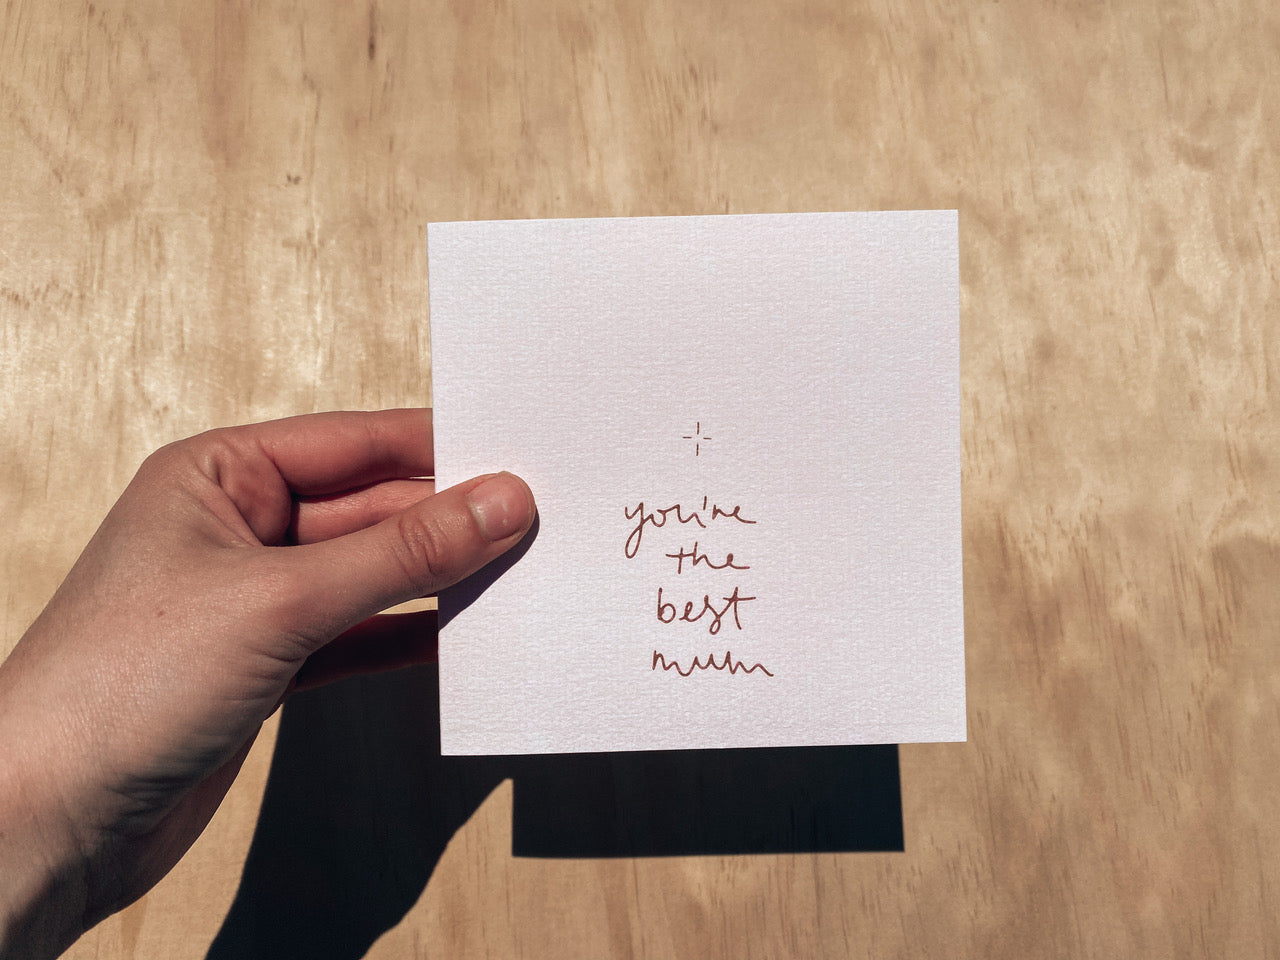 you're
the
best
mum